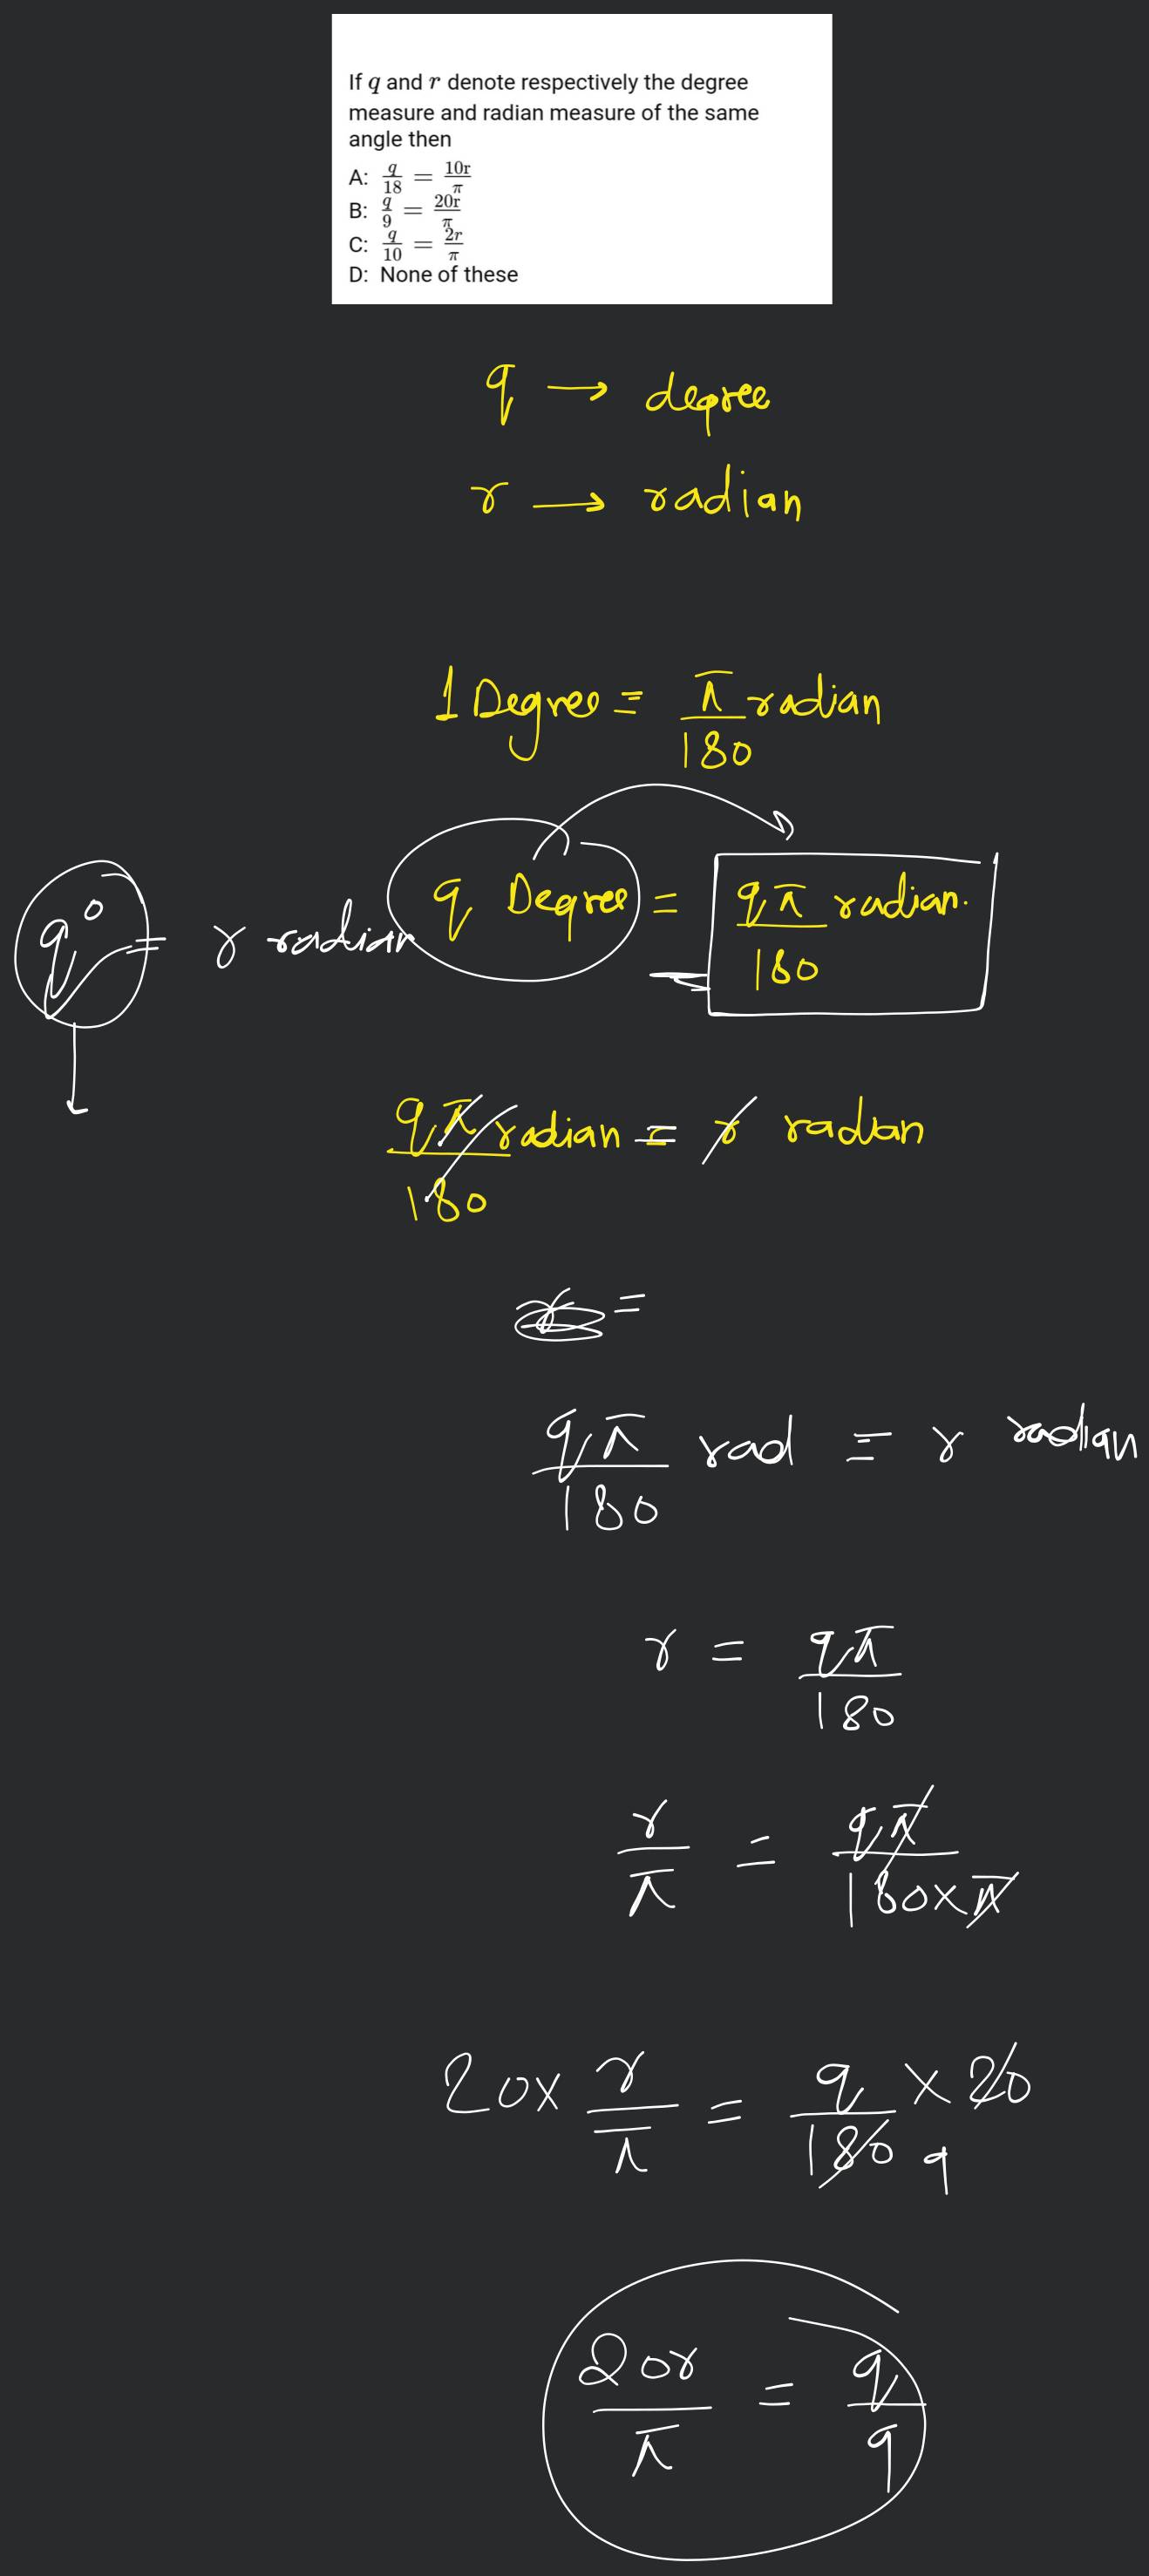 If q and r denote respectively the degree
measure and radian measure of the same
angle then
A: q/18 = 10r/π
B: q/9 = 20r/π
C: q/10 = 2r/π
D: None of these
q → degree
r → radian
1 Degree = π/180 radian
q° = r radian
q Degree = qπ/180 radian.
qπ/180 radian = r radian
=
qπ/180 rad = r radian
r = qπ/180
r/π = qπ/180×π
20× r/π = q/180 × 20
9
20r/π = q/9